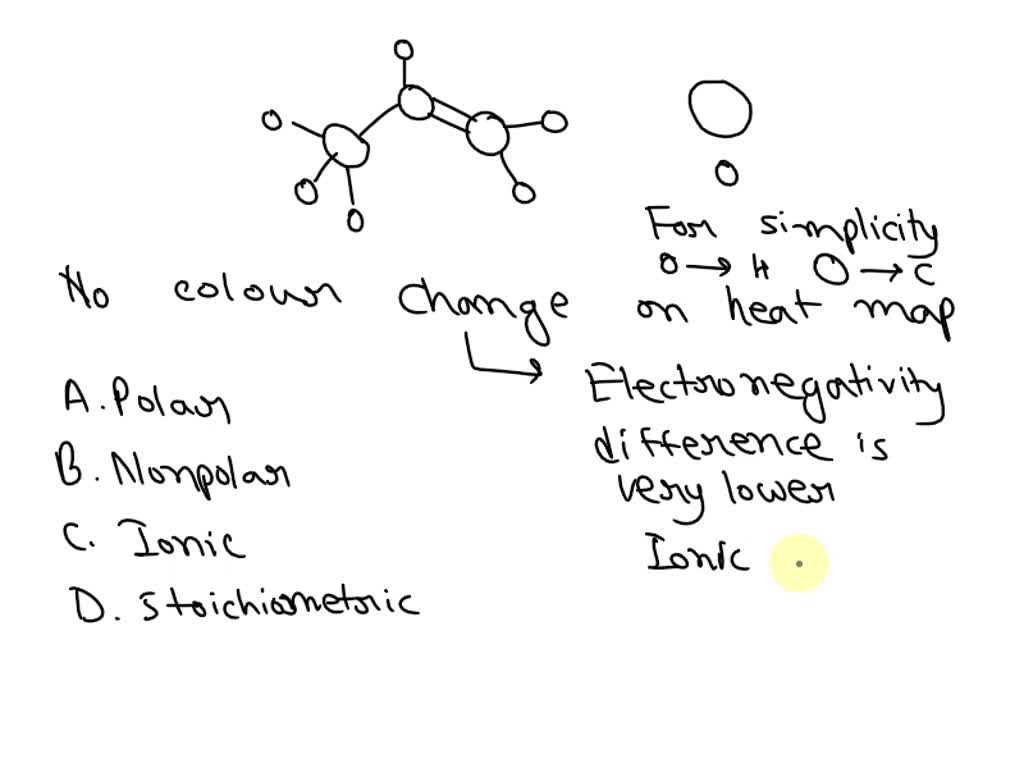 For simplicity
O → H O → C
No colour change on heat map
Electronegativity
difference is
very lower
A. Polar
B. Nonpolar
C. Ionic
D. Stoichiometric
Ionic